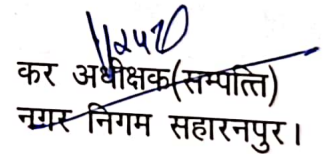 कर अधीक्षक(सम्पत्ति)
नगर निगम सहारनपुर।